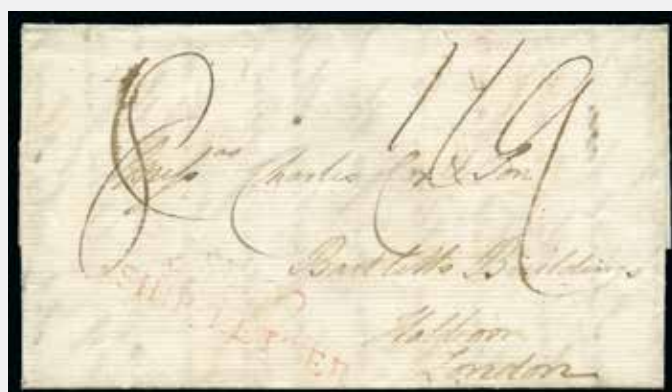 8 1/9
Mess.rs Charles Cox & Son
Bartletts Buildings
Holborn
London
SHIP LETTER